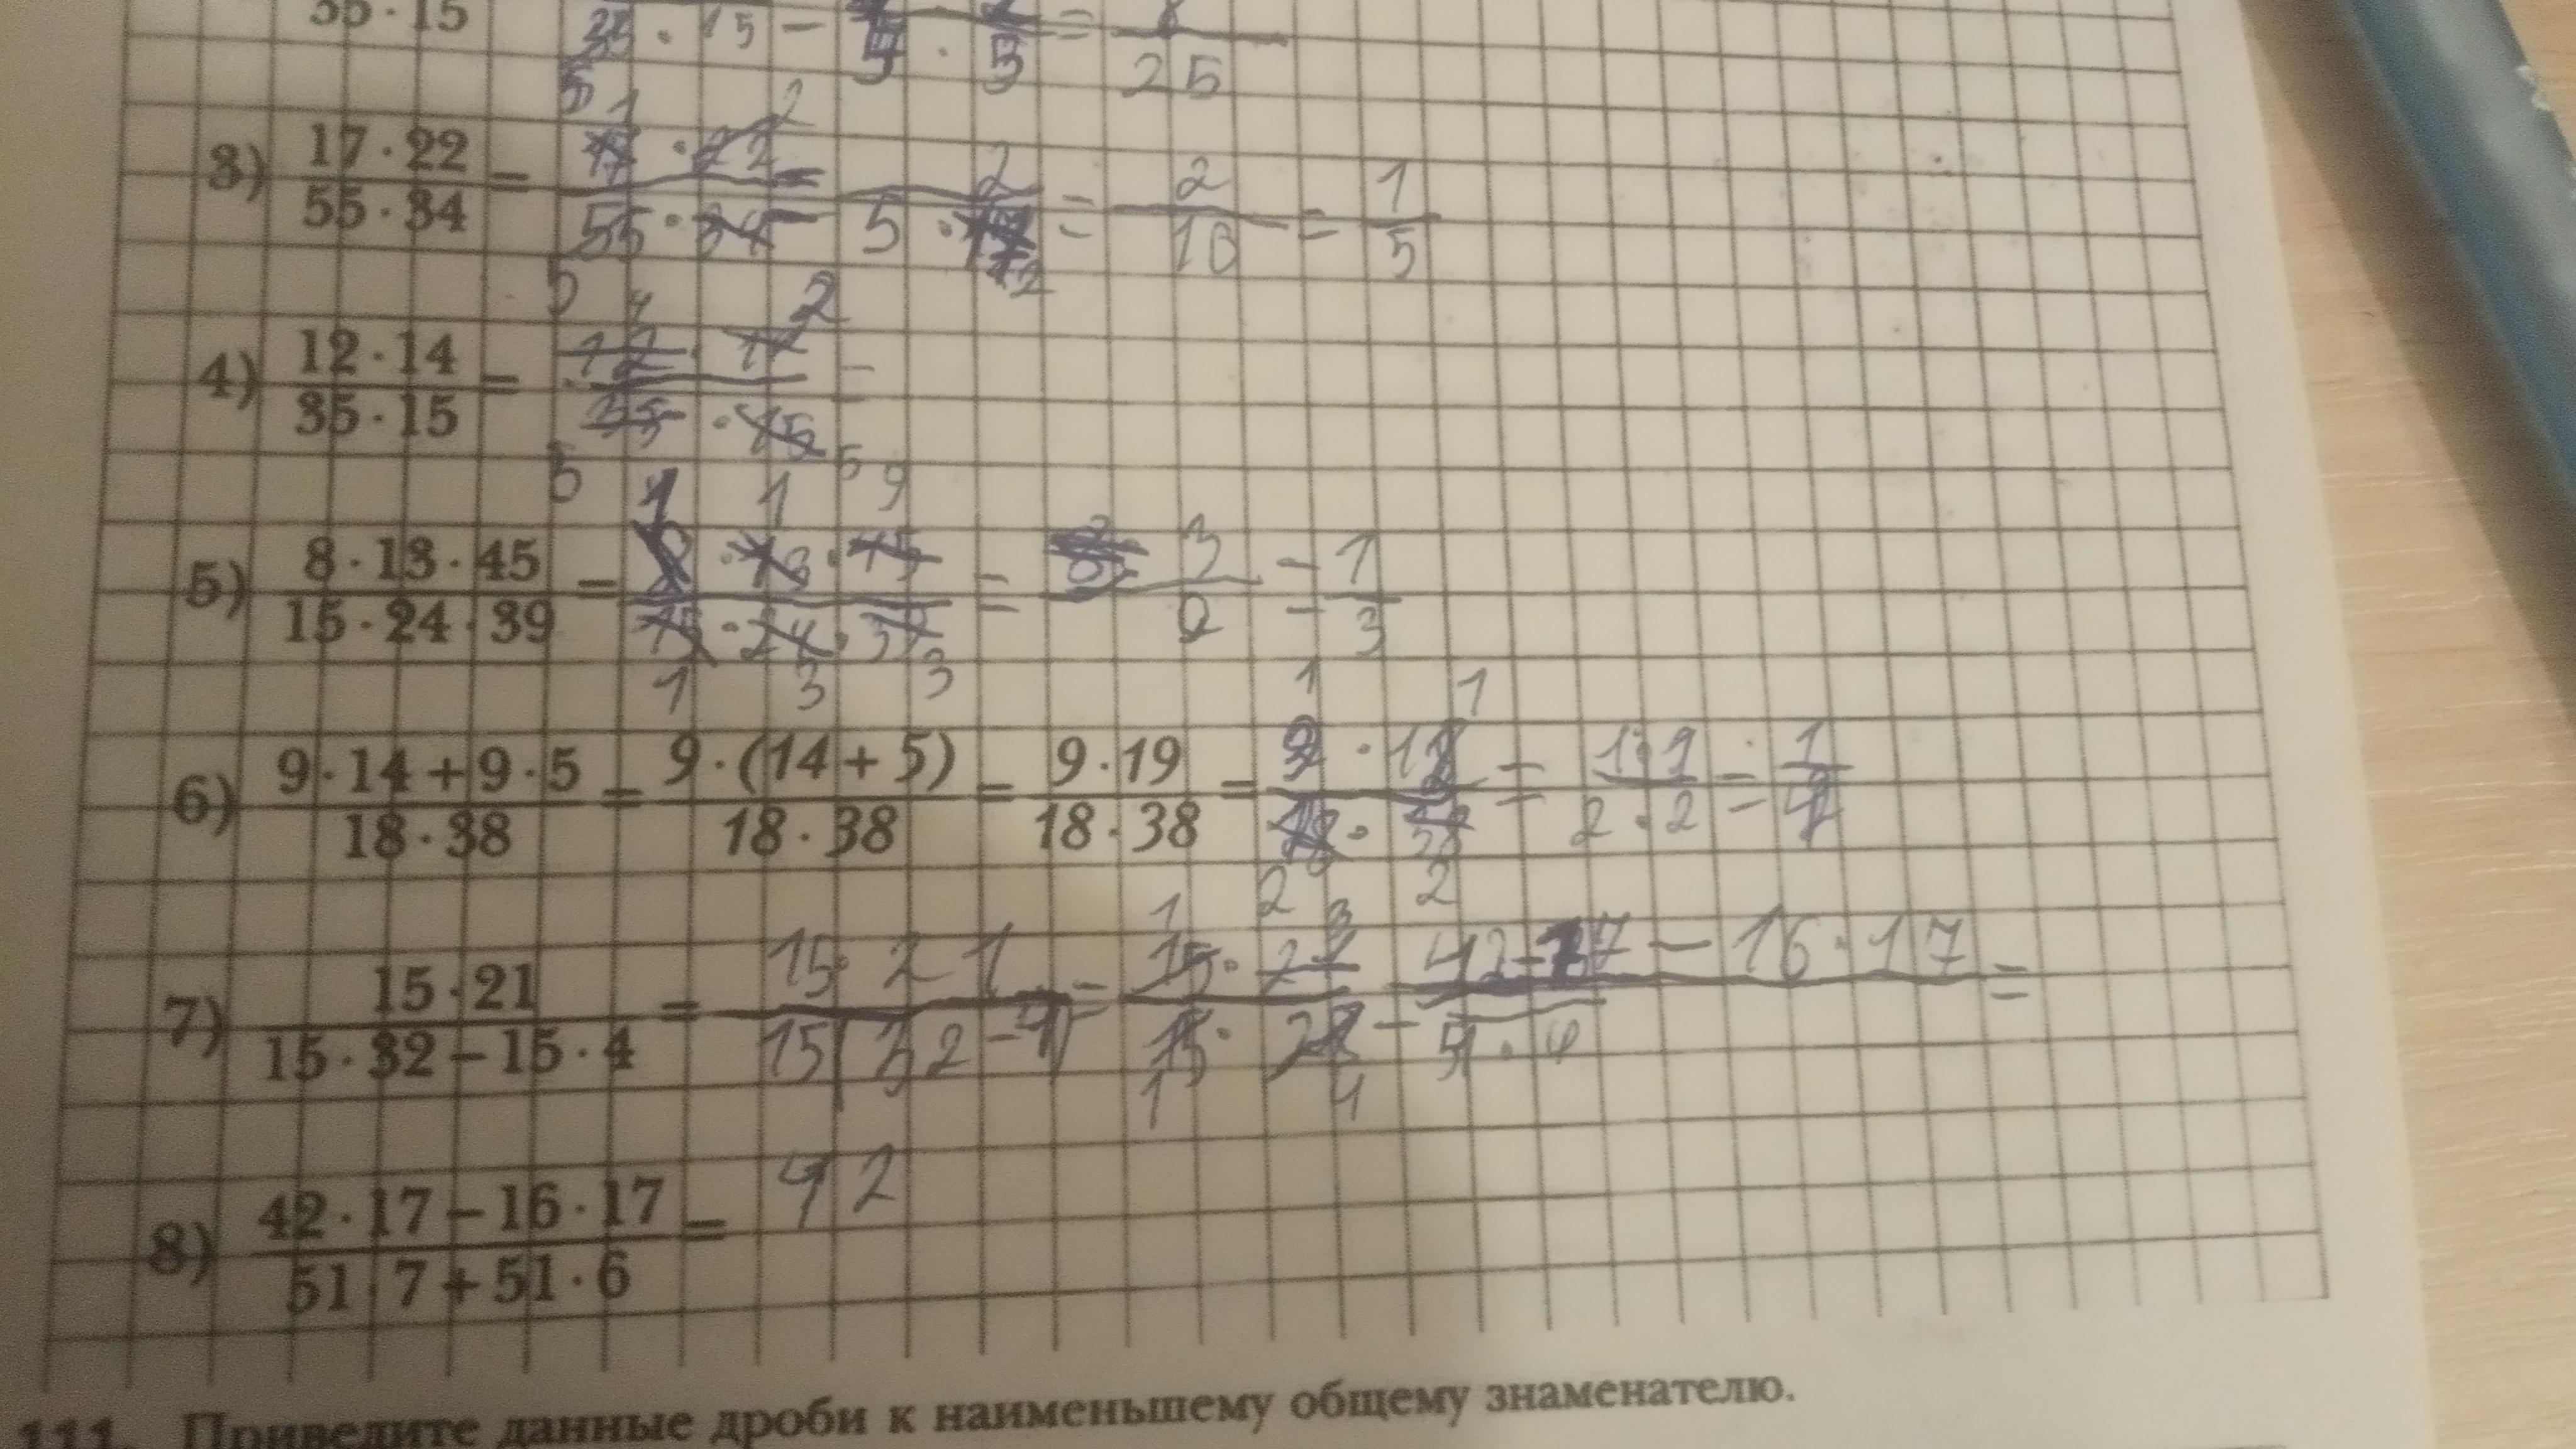 35 · 15 35 · 15 = 5 · 5 = 25
5 1 2
3) 17 · 22 / 55 · 34 = 17 · 22 / 55 · 34 = 2 / 5 · 2 = 2 / 10 = 1 / 5
5 4 2
4) 12 · 14 / 35 · 15 = 12 · 14 / 35 · 15 =
5 5
1 1 9
5) 8 · 13 · 45 / 15 · 24 · 39 = 8 · 13 · 45 / 15 · 24 · 39 = 3 / 9 = 1 / 3
1 3 3
1 1
6) 9 · 14 + 9 · 5 / 18 · 38 = 9 · (14 + 5) / 18 · 38 = 9 · 19 / 18 · 38 = 9 · 19 / 18 · 38 = 1 · 1 / 2 · 2 = 1 / 4
2 2
1 3
7) 15 · 21 / 15 · 32 – 15 · 4 = 15 · 21 / 15 (32 - 4) = 15 · 21 / 15 · 28 = 42 - 17 - 16 · 17 =
1 4
8) 42 · 17 – 16 · 17 / 51 · 7 + 51 · 6 = 42
111. Приведите данные дроби к наименьшему общему знаменателю.